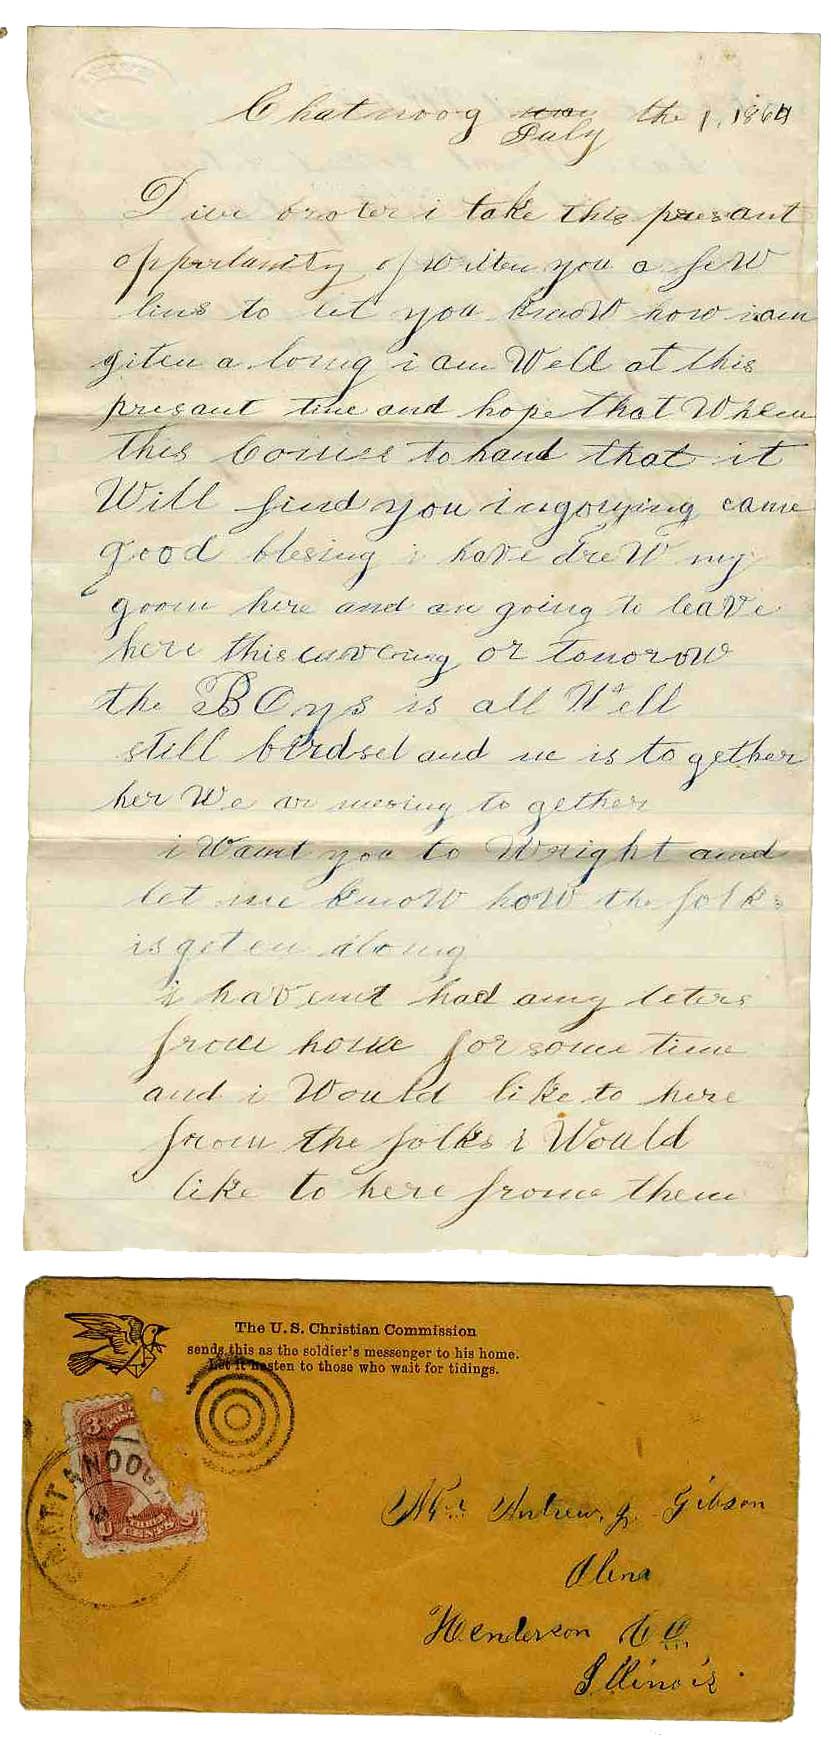 Chatnoog
July the 1, 1864
Diur broter i take this presant
oppertunity of writen you a few
lins to let you know how i am
giten a long i am Well at this
presant time and hope that When
this Comes to hand that it
Will find you ingoying came
good blesing i have dreW my
goom here and am going to leave
here this eavening or tomorow
the BOys is all Well
still birdsel and me is to gether
her We ar mesing to gether
i Want you to Wright and
let me know hoW the folks
is goten along
i havent had any leters
from home for some time
and i Would like to here
from the folks i Would
like to here frome them
The U. S. Christian Commission
sends this as the soldier's messenger to his home.
Let it hasten to those who wait for tidings.
3
CHATTANOOGA
THREE
CENTS
Mr Andrew J. Gibson
Olena
Henderson CO
Illinois.